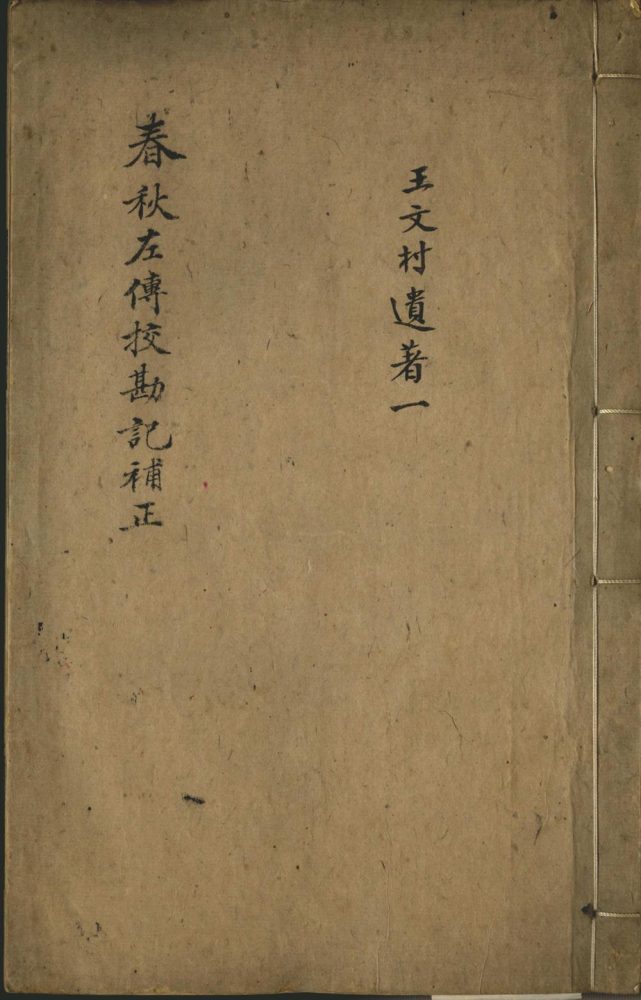 王文村遺著一
春秋左傳挍勘記補正